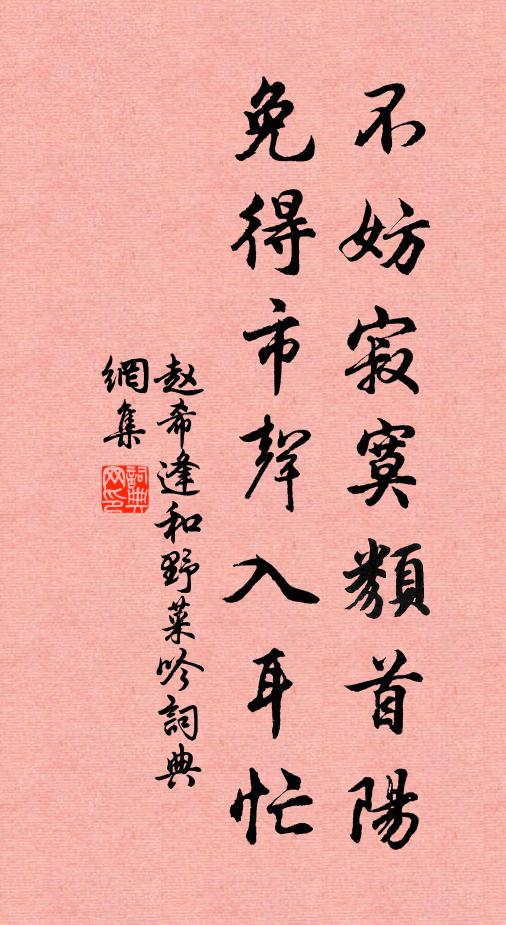 不妨寂寞類首陽
免得市聲入耳忙
赵希逢和野菜吟詞典
網集
詞典
网印